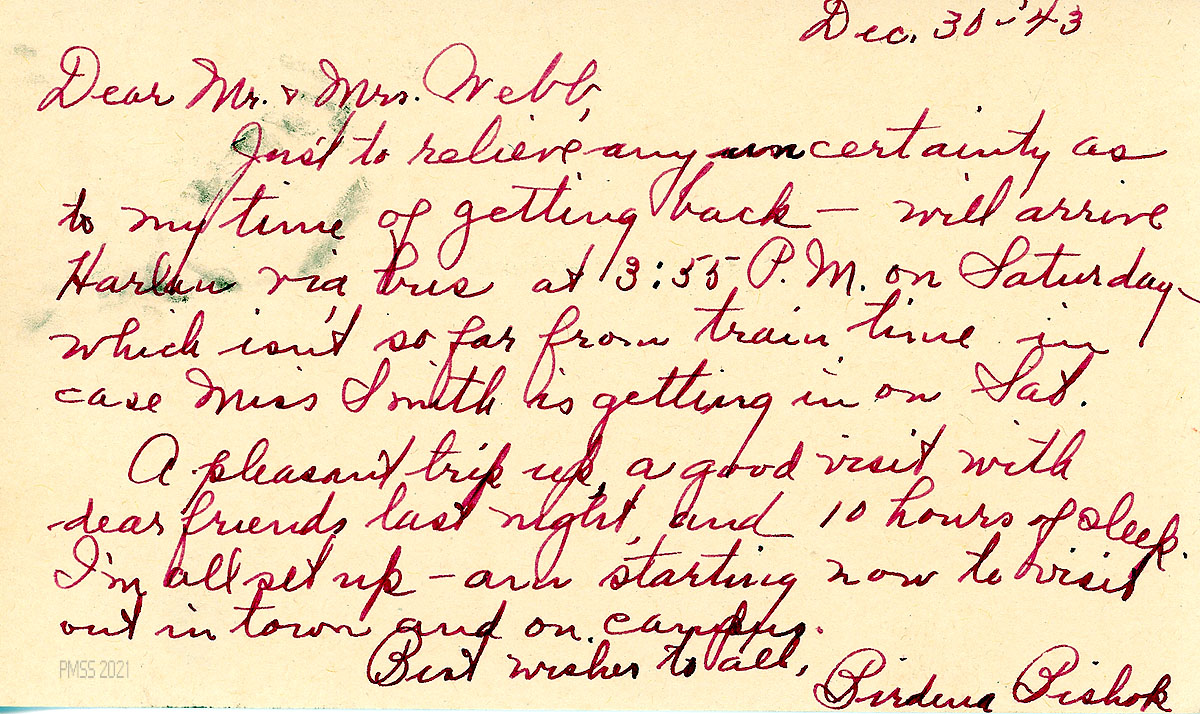 Dec. 30 - '43
Dear Mr. & Mrs. Webb,
Just to relieve any uncertainty as
to my time of getting back – will arrive
Harlan via bus at 3:55 P.M. on Saturday –
which isn't so far from train time in
case Miss Smith is getting in on Sat.
A pleasant trip up, a good visit with
dear friends last night, and 10 hours of sleep.
I'm all set up – am starting now to visit
out in town and on campus.
Best wishes to all,
Birdena Bishop
PMSS 2021